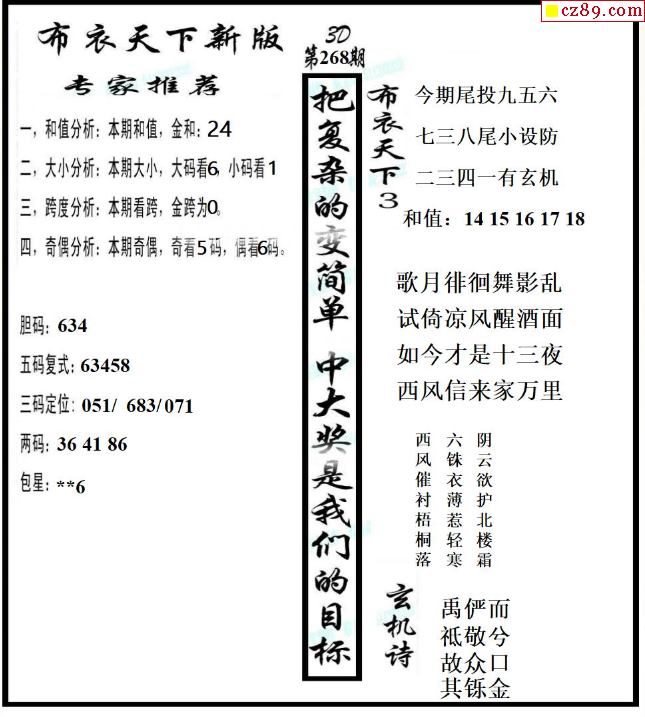 cz89.com
布衣天下新版
专家推荐
一，和值分析：本期和值，金和：24
二，大小分析：本期大小，大码看6，小码看1
三，跨度分析：本期看跨，金跨为0。
四，奇偶分析：本期奇偶，奇看5码，偶看6码。
胆码：634
五码复式：63458
三码定位：051/ 683/071
两码：36 41 86
包星：**6
3D
第268期
把复杂的变简单 中大奖是我们的目标
布衣天下3
今期尾投九五六
七三八尾小设防
二三四一有玄机
和值：14 15 16 17 18
歌月徘徊舞影乱
试倚凉风醒酒面
如今才是十三夜
西风信来家万里
西 六 阴
风 铢 云
催 衣 欲
衬 薄 护
梧 惹 北
桐 轻 楼
落 寒 霜
玄机诗
禹俨而
祗敬兮
故众口
其铄金